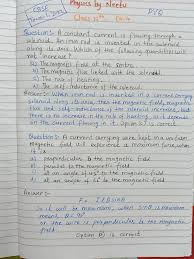 CBSE
Physics by Neetu
Term 1, 2021
PYQ
Class 12th Ch-4
Question: A constant current is flowing through a
solenoid. An iron rod is inserted in the solenoid
along its axis. Which of the following quantities will
not increase?
a) The magnetic field at the centre.
b) The magnetic flux linked with the solenoid
c) The rate of heating.
d) The self-inductance of the solenoid.
Answer: When iron rod is inserted in a current carrying
solenoid along its axis, then the magnetic field, magnetic
flux and self-inductance of the solenoid increases, but
there is no increase in the rate of heating, as it depends
on the current flowing in it. Option is correct.
Question: A current carrying wire kept in a uniform
magnetic field will experience a maximum force when
it is
a) perpendicular to the magnetic field
b) parallel to the magnetic field
c) at an angle of 45° to the magnetic field
d) at an angle of 60° to the magnetic field
Answer:-
F = IlBSinθ
So it will be maximum, when Sinθ is maximum
means, θ = 90°
the wire is perpendicular to the magnetic
field.
Option is correct